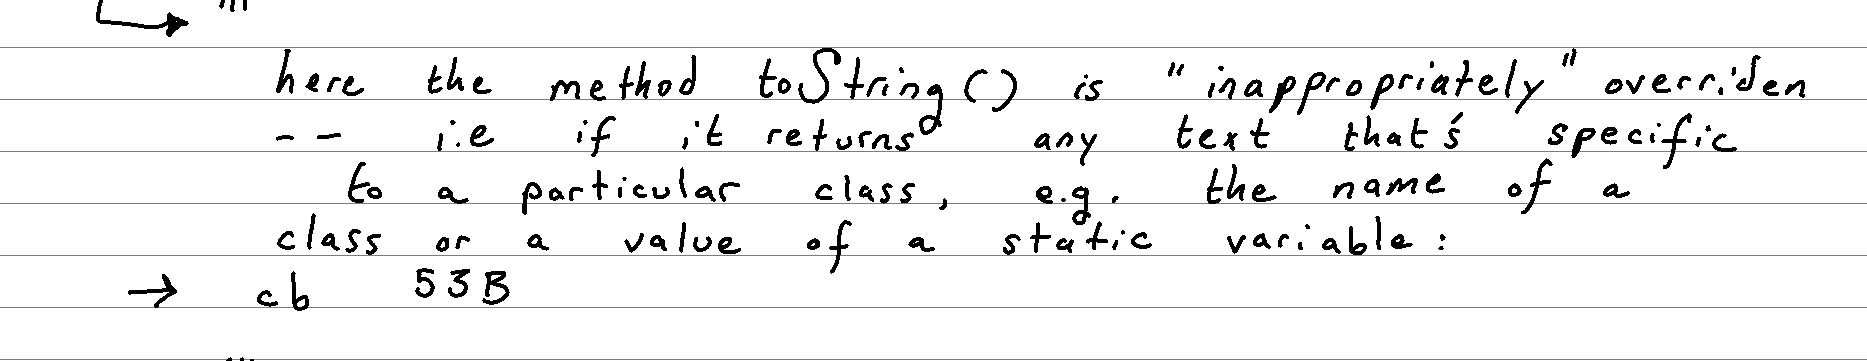 here the method toString() is "inappropriately" overriden
-- i.e if it returns any text that's specific
to a particular class, e.g. the name of a
class or a value of a static variable:
→ cb 53B